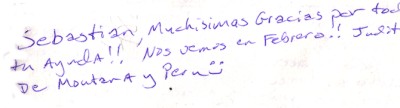 Sebastian, Muchisimas Gracias por tod
tu AyudA!! Nos vemos en Febrero!! Judit
De MontanA y Peru